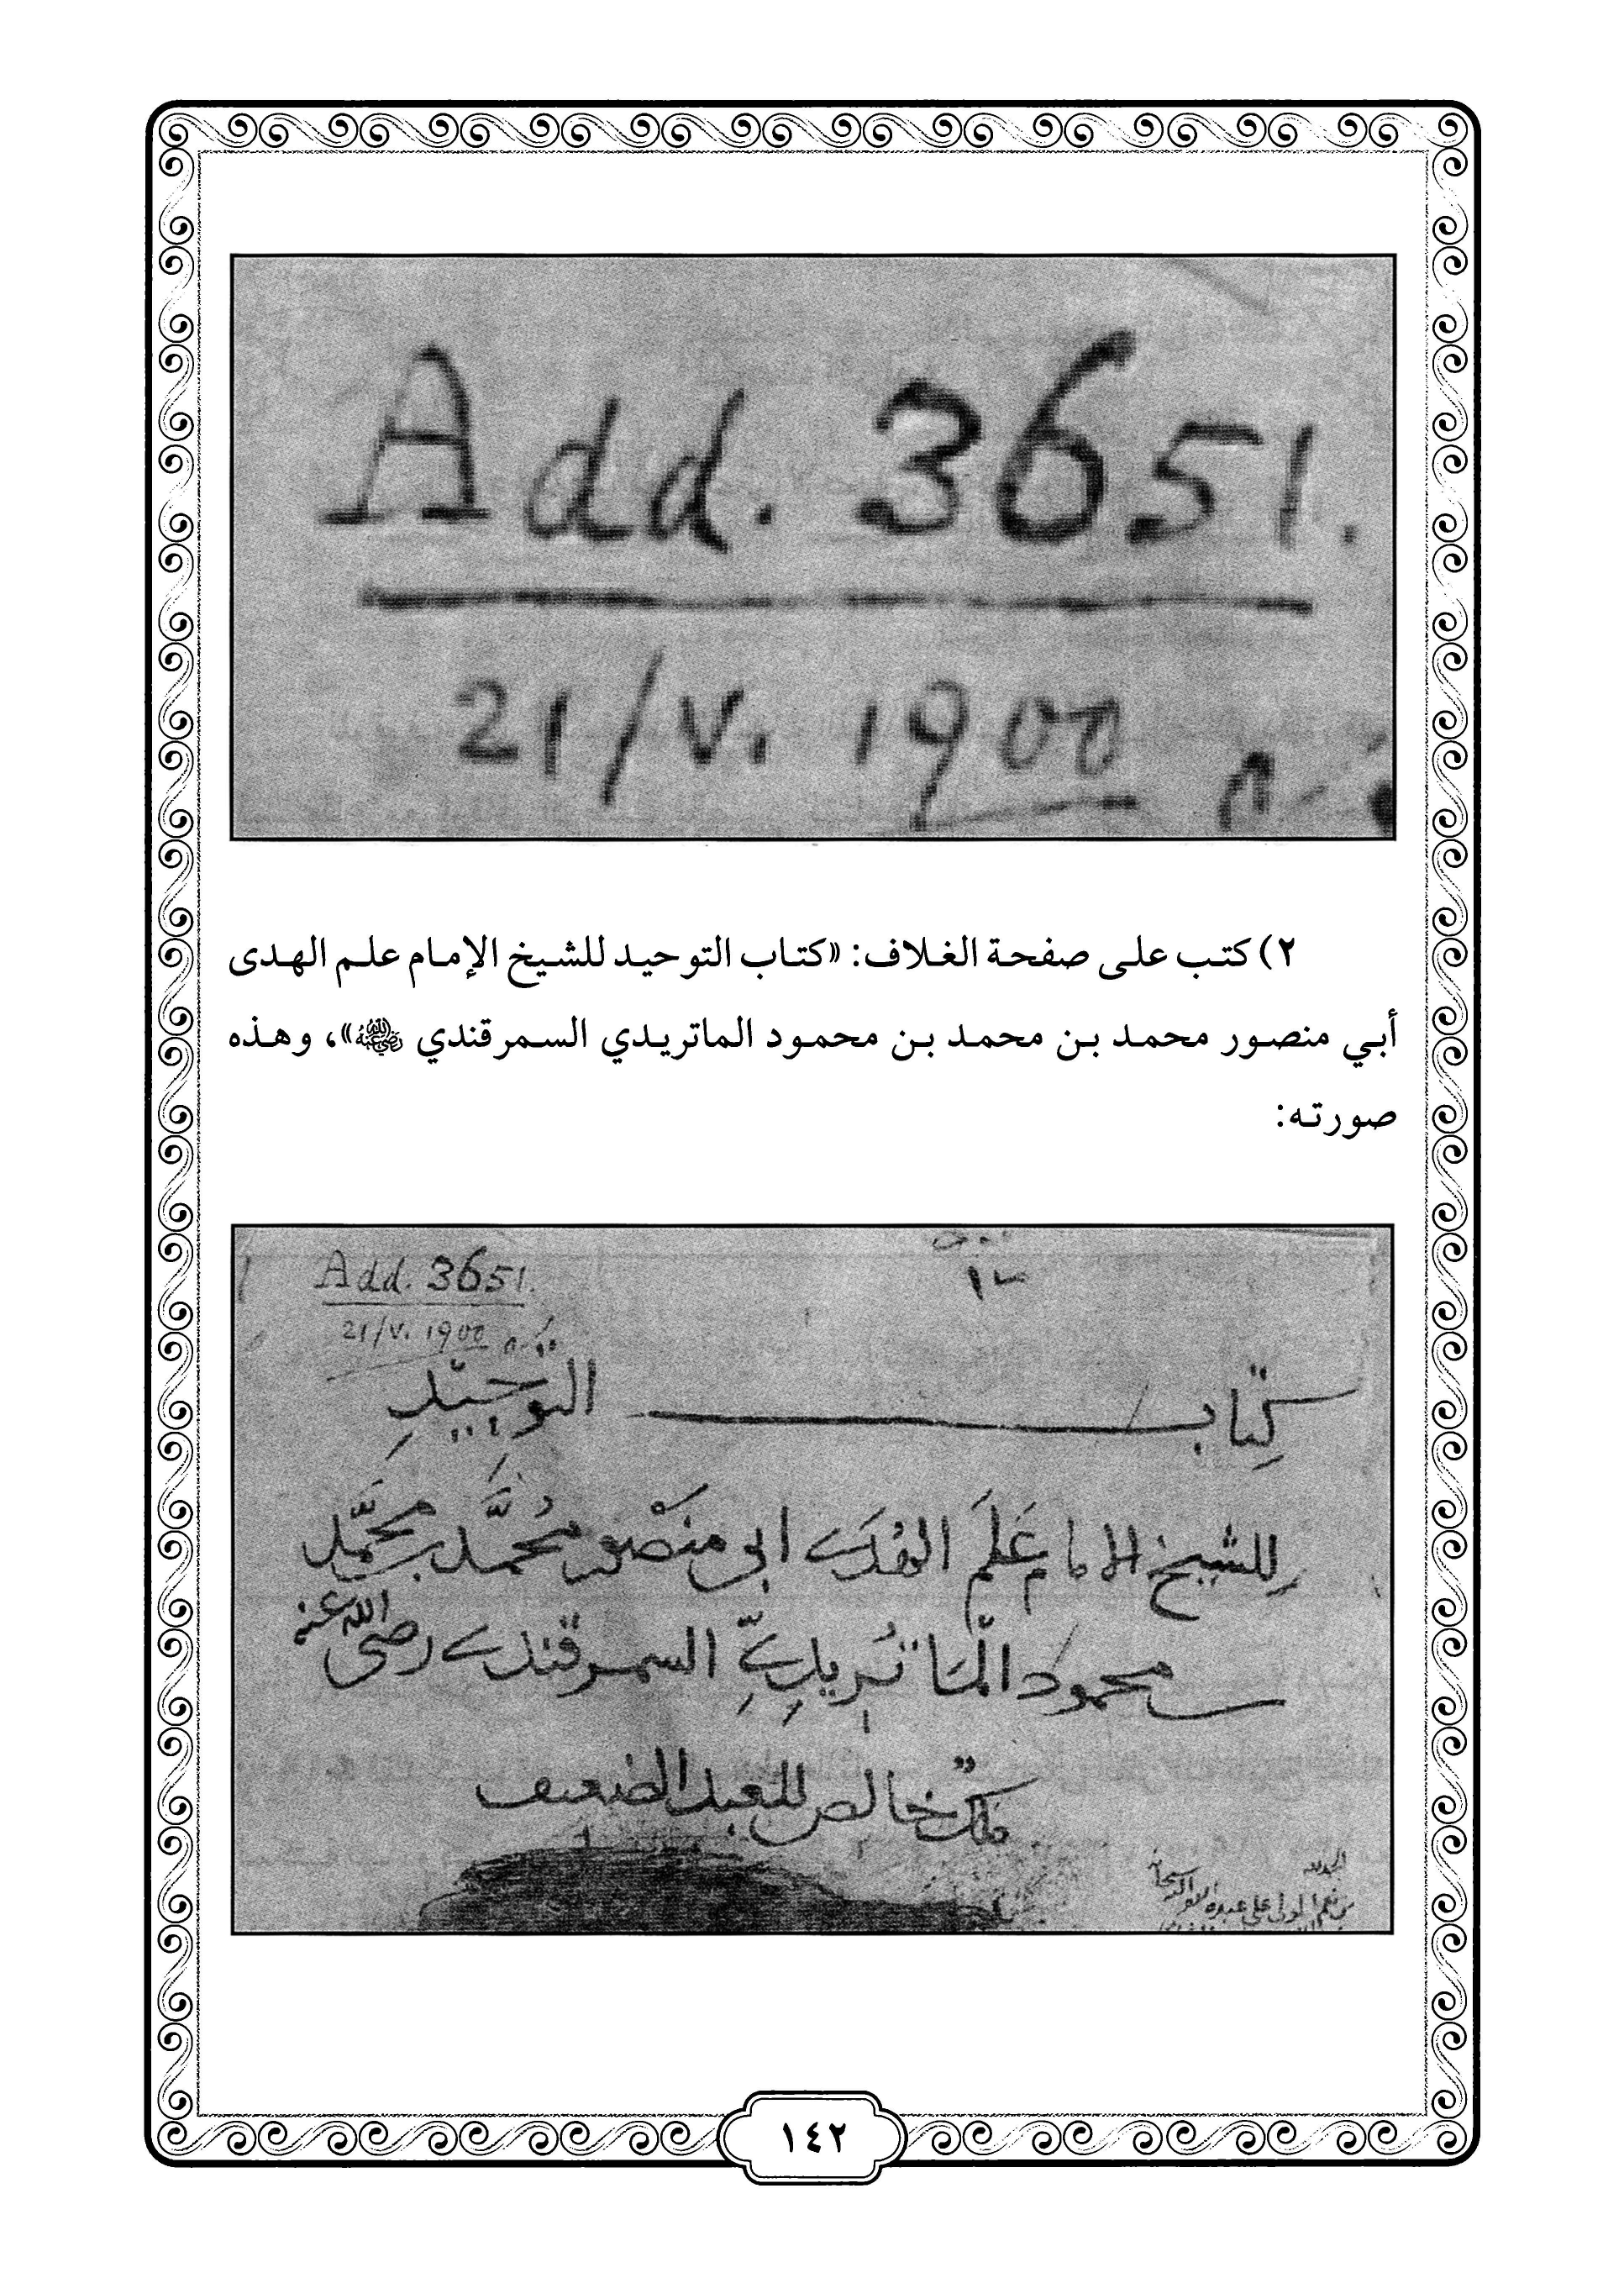 Add. 3651.
21/V. 1900
٢) كتب على صفحة الغلاف: «كتاب التوحيد للشيخ الإمام علم الهدى
أبي منصور محمد بن محمد بن محمود الماتريدي السمرقندي ﷺ»، وهذه
صورته:
Add. 3651.
21/V. 1900
كِتَاب التَّوحِيْدِ
لِلشيخ الامام عَلَمَ الهُدَى ابى منصور محُمَّد بن محمَّد
بن محمود الماتُرِيدِيِّ السمرقندى رضى الله عنه
ملك خالص للعبد الضعيف
الحمد لله
من نعم المولى على عبده
١٤٢